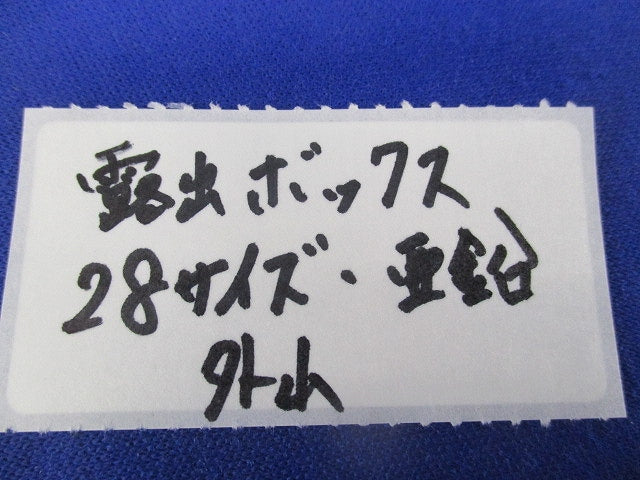 露出ボックス
28サイズ・亜鉛
外山